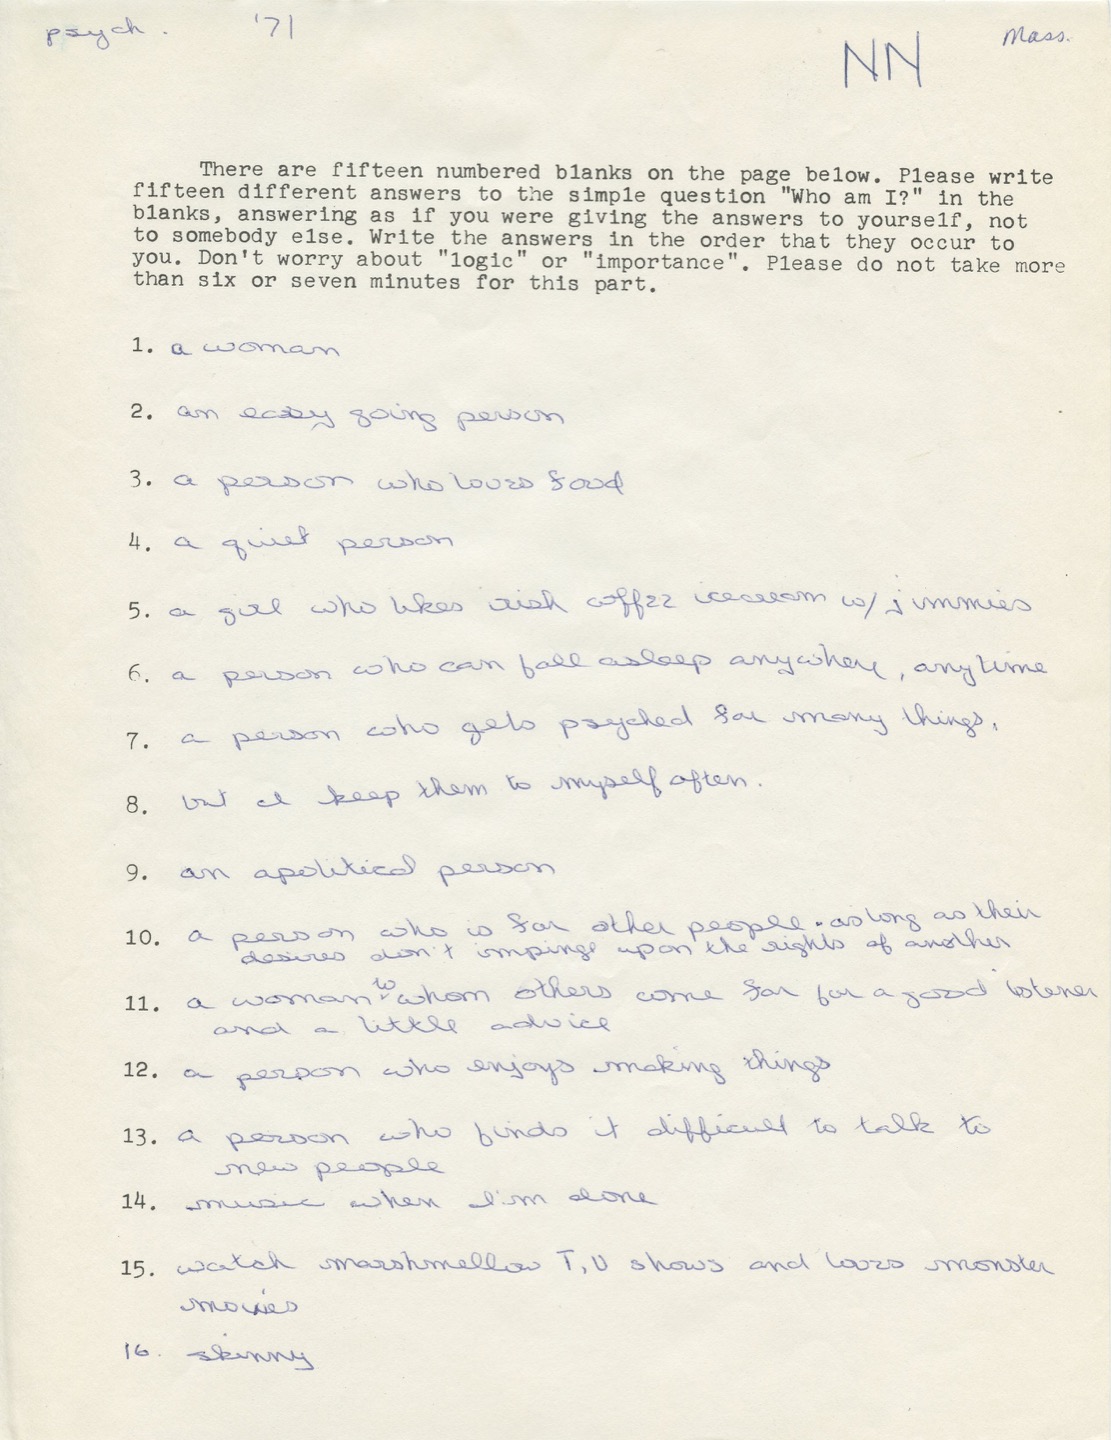 psych. '71 Mass.
NN
There are fifteen numbered blanks on the page below. Please write
fifteen different answers to the simple question "Who am I?" in the
blanks, answering as if you were giving the answers to yourself, not
to somebody else. Write the answers in the order that they occur to
you. Don't worry about "logic" or "importance". Please do not take more
than six or seven minutes for this part.
1. a woman
2. an easy going person
3. a person who loves food
4. a quiet person
5. a girl who likes irish coffee icecream w/ jimmies
6. a person who can fall asleep anywhere, anytime
7. a person who gets psyched for many things,
8. but I keep them to myself often.
9. an apolitical person
10. a person who is for other people. as long as their
desires don't impinge upon the rights of another
11. a woman to whom others come for for a good listener
and a little advice
12. a person who enjoys making things
13. a person who finds it difficult to talk to
new people
14. music when I'm alone
15. watch marshmellow T.V shows and loves monster
movies
16. skinny